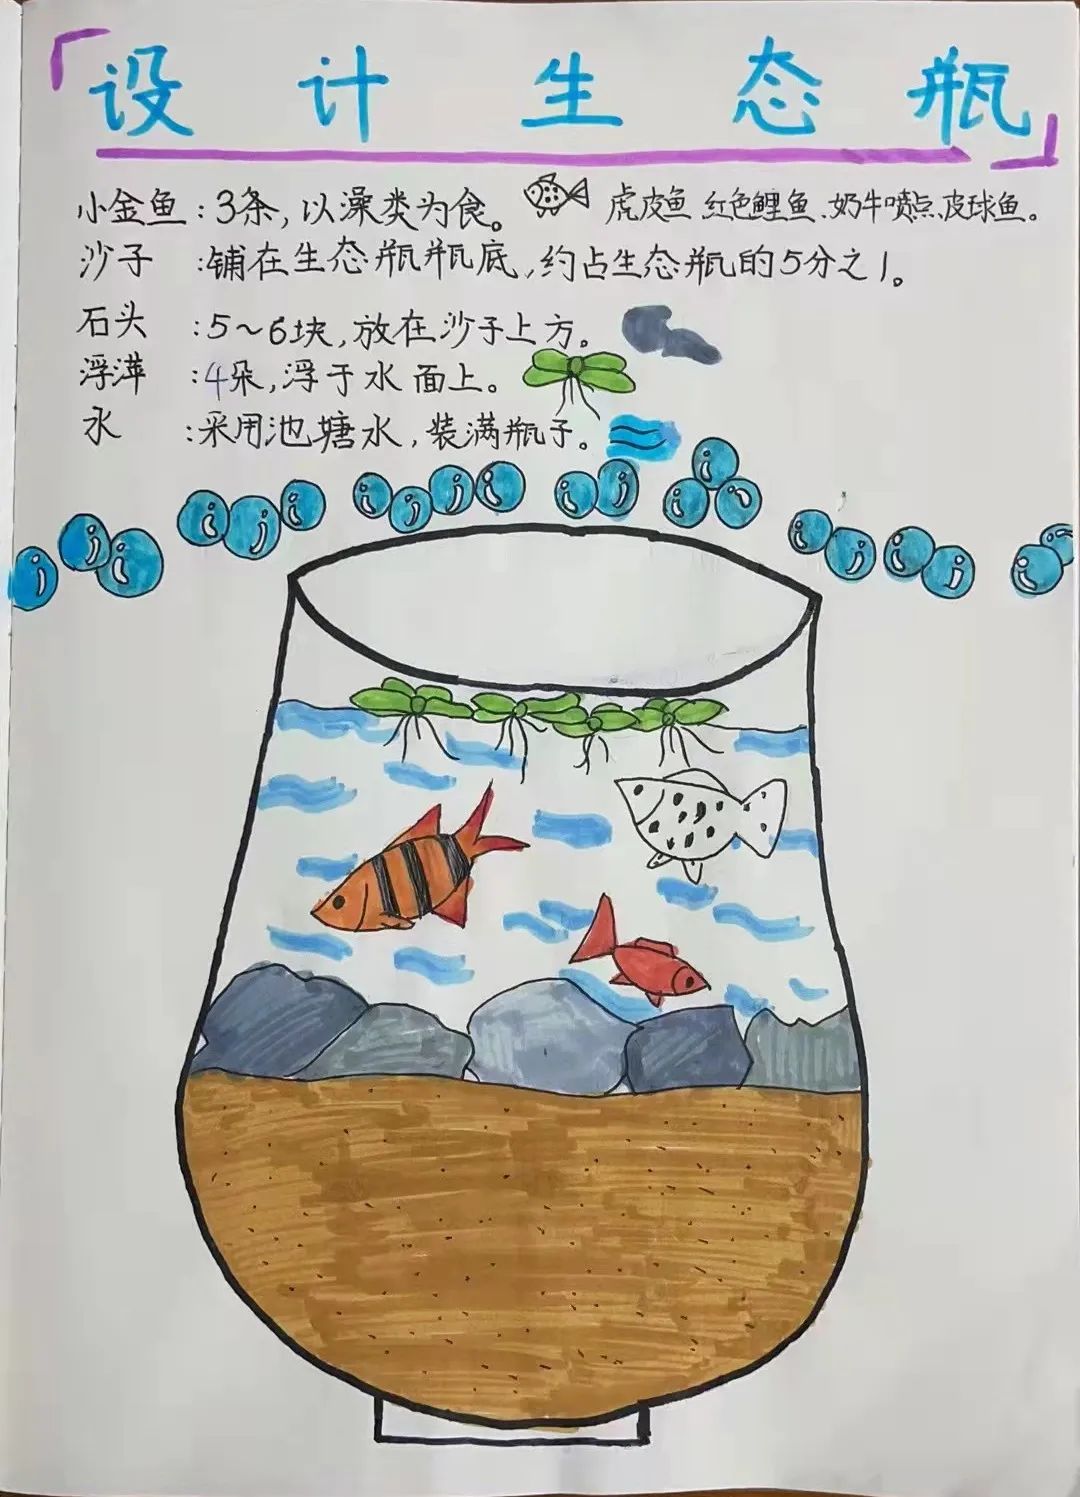 「设计生态瓶」
小金鱼：3条，以澡类为食。 虎皮鱼 红色鲤鱼、奶牛喷点皮球鱼。
沙子：铺在生态瓶瓶底，约占生态瓶的5分之1。
石头：5～6块，放在沙子上方。
浮萍：4朵，浮于水面上。
水：采用池塘水，装满瓶子。